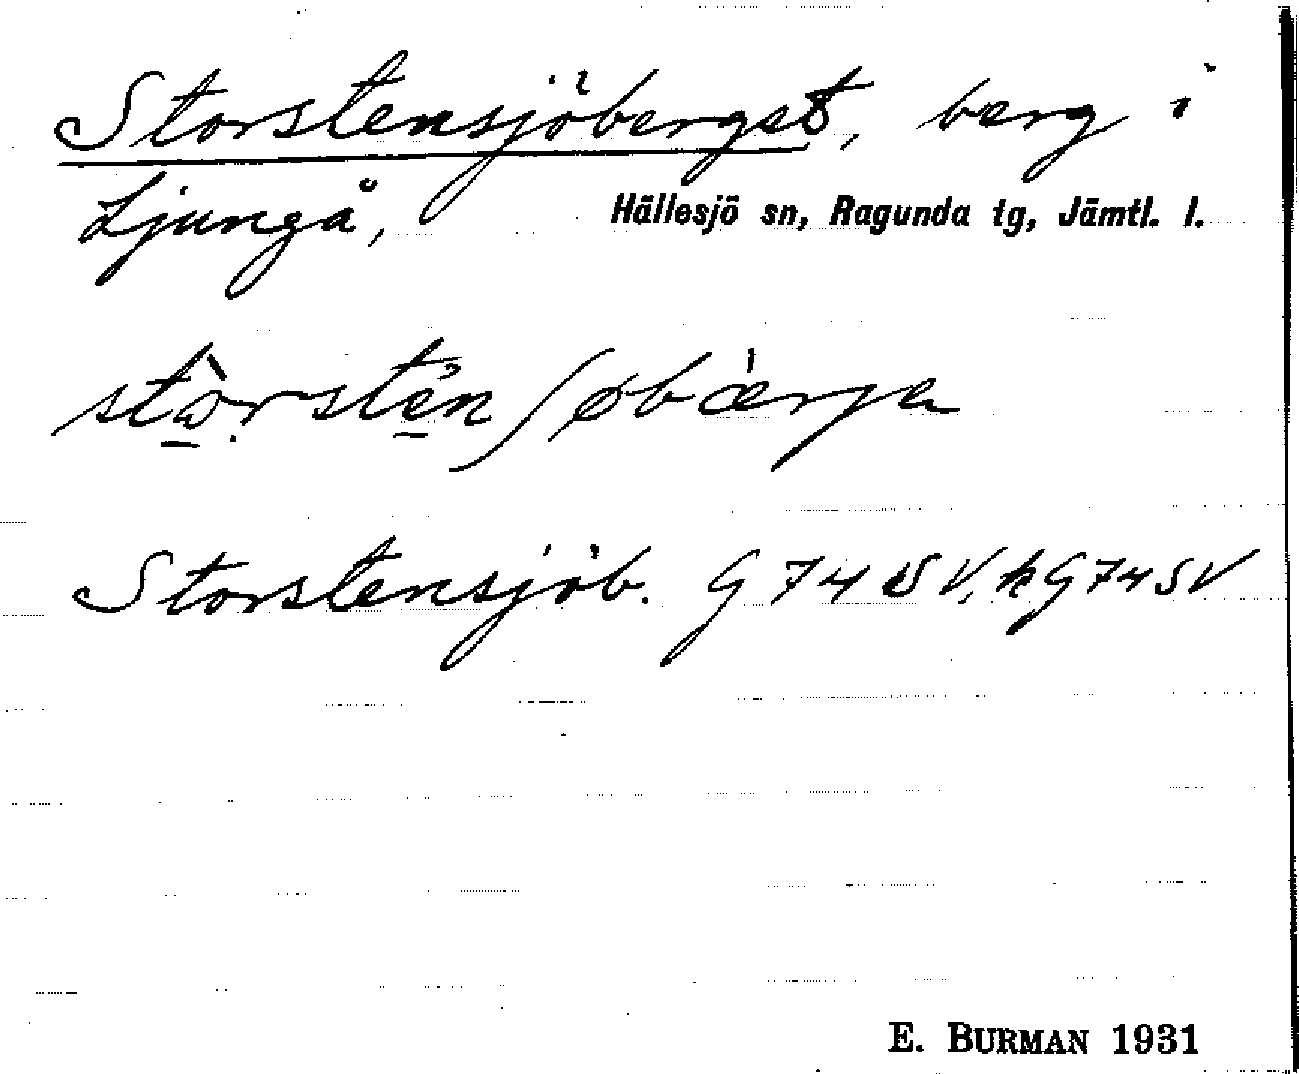 Storstensjöberget, berg i
Ljungå, Hällesjö sn, Ragunda tg, Jämtl. l.
stɷ̀rsténʃøbærja
Storstensjöb. G 74 SV, hG74SV
E. BURMAN 1931